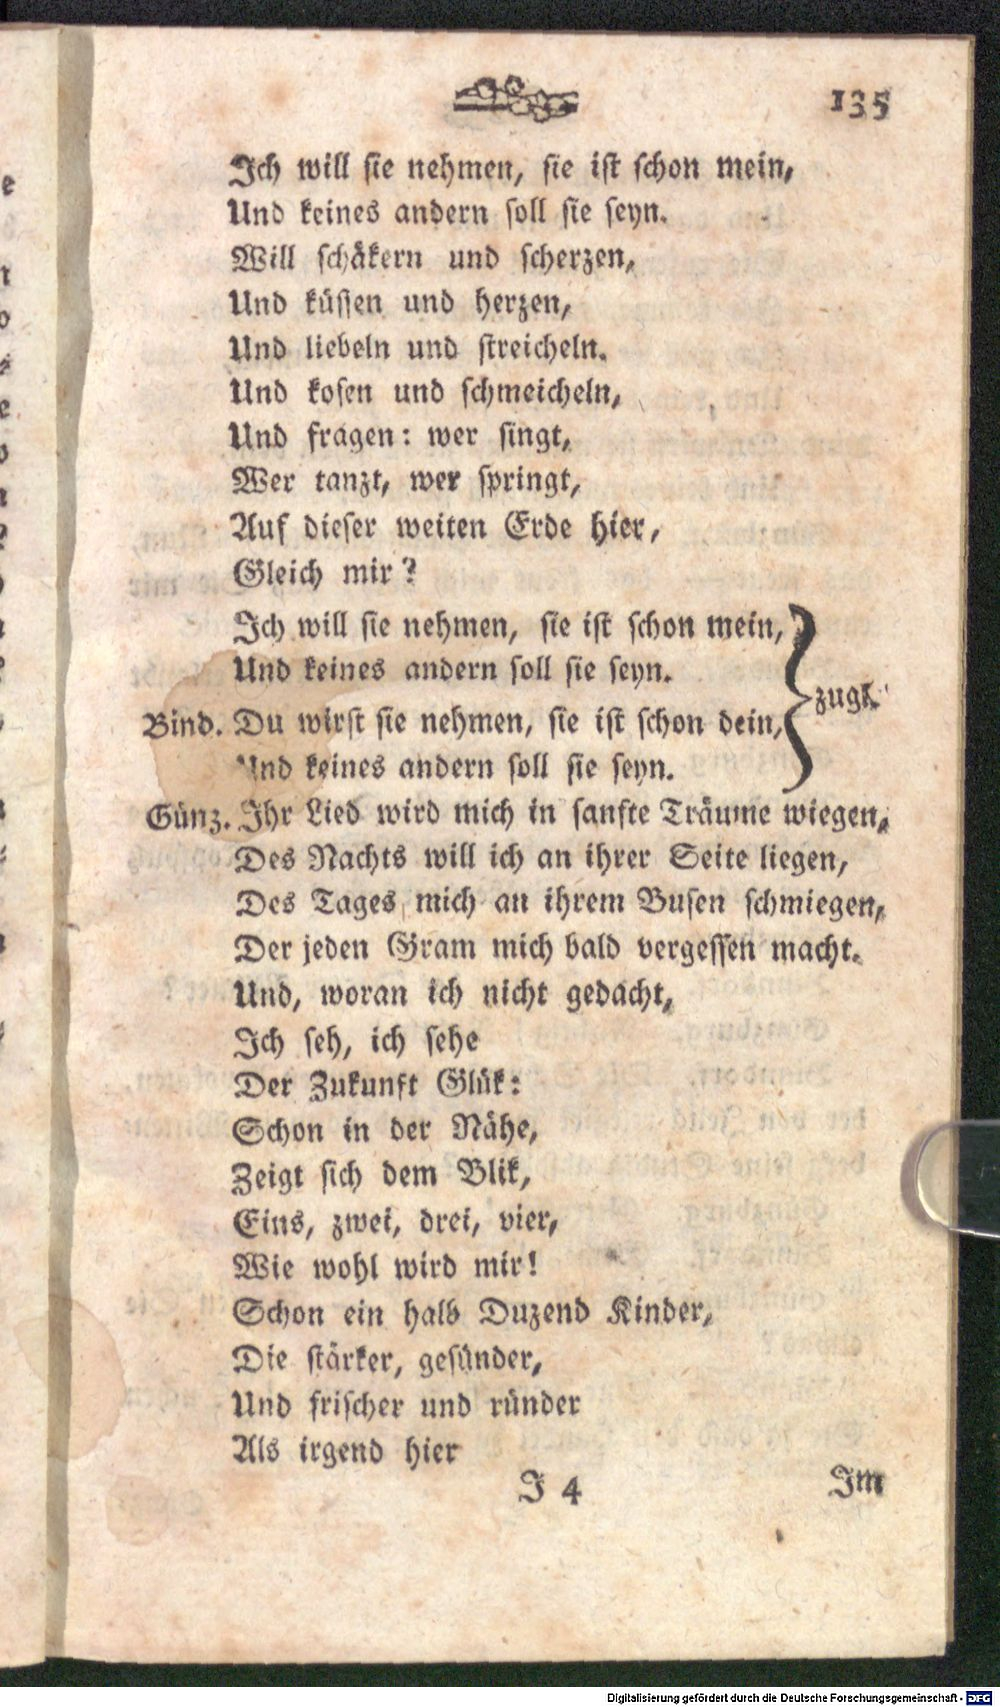 135
Ich will sie nehmen, sie ist schon mein,
Und keines andern soll sie seyn.
Will schäkern und scherzen,
Und küssen und herzen,
Und liebeln und streicheln.
Und kosen und schmeicheln,
Und fragen: wer singt,
Wer tanzt, wer springt,
Auf dieser weiten Erde hier,
Gleich mir?
Ich will sie nehmen, sie ist schon mein,
Und keines andern soll sie seyn.
zugl.
Bind. Du wirst sie nehmen, sie ist schon dein,
Und keines andern soll sie seyn.
Günz. Ihr Lied wird mich in sanfte Träume wiegen,
Des Nachts will ich an ihrer Seite liegen,
Des Tages mich an ihrem Busen schmiegen,
Der jeden Gram mich bald vergessen macht.
Und, woran ich nicht gedacht,
Ich seh, ich sehe
Der Zukunft Glük:
Schon in der Nähe,
Zeigt sich dem Blik,
Eins, zwei, drei, vier,
Wie wohl wird mir!
Schon ein halb Duzend Kinder,
Die stärker, gesünder,
Und frischer und ründer
Als irgend hier
J 4 Im
Digitalisierung gefördert durch die Deutsche Forschungsgemeinschaft - DFG